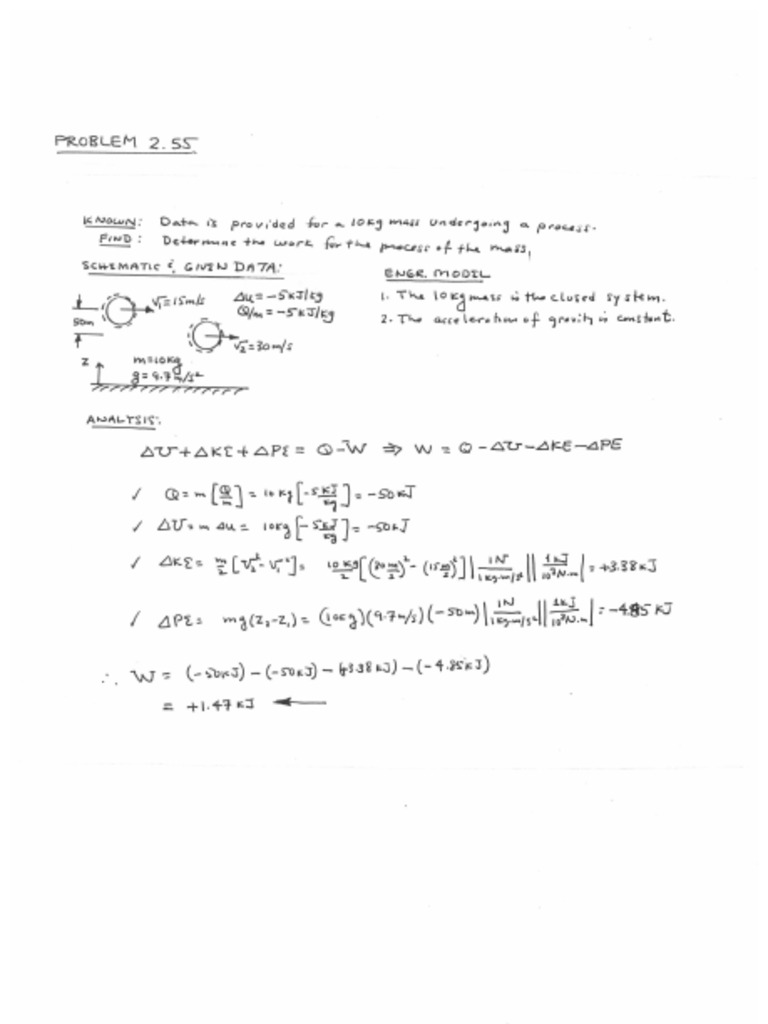 PROBLEM 2.55
KNOWN: Data is provided for a 10kg mass undergoing a process.
FIND: Determine the work for the process of the mass,
SCHEMATIC & GIVEN DATA:
ENGR. MODEL
V₁=15m/s
Δu = -5kJ/kg
Q/m = -5kJ/kg
50m
V₂=30m/s
z
m=10kg
g = 9.7m/s²
1. The 10kg mass is the closed system.
2. The acceleration of gravity is constant.
ANALYSIS:
ΔU+ΔKE+ΔPE = Q-W ⇒ W = Q-ΔU-ΔKE-ΔPE
✓ Q = m[Q/m] = 10kg[-5kJ/kg] = -50kJ
✓ ΔU = m Δu = 10kg[-5kJ/kg] = -50kJ
✓ ΔKE = m/2 [V₂²-V₁²] = 10kg/2 [(30m/s)²-(15m/s)²]|1N/1kg·m/s²||1kJ/10³N·m| = +3.38kJ
✓ ΔPE = mg(z₂-z₁) = (10kg)(9.7m/s)(-50m)|1N/1kg·m/s²||1kJ/10³N·m| = -4.85 kJ
∴ W = (-50kJ)-(-50kJ)-(+3.38kJ)-(-4.85kJ)
= +1.47kJ ←